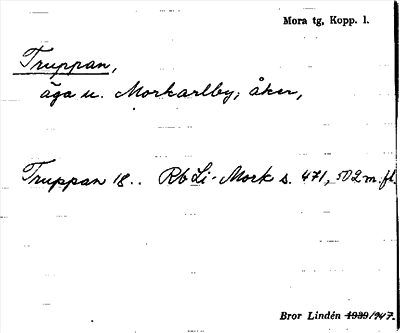 Mora tg, Kopp. l.
Truppan,
äga u. Morkarlby; åker,
Truppan 18.. Rb Li-Mork s. 471, 502 m. fl.
Bror Lindén 1939/947.